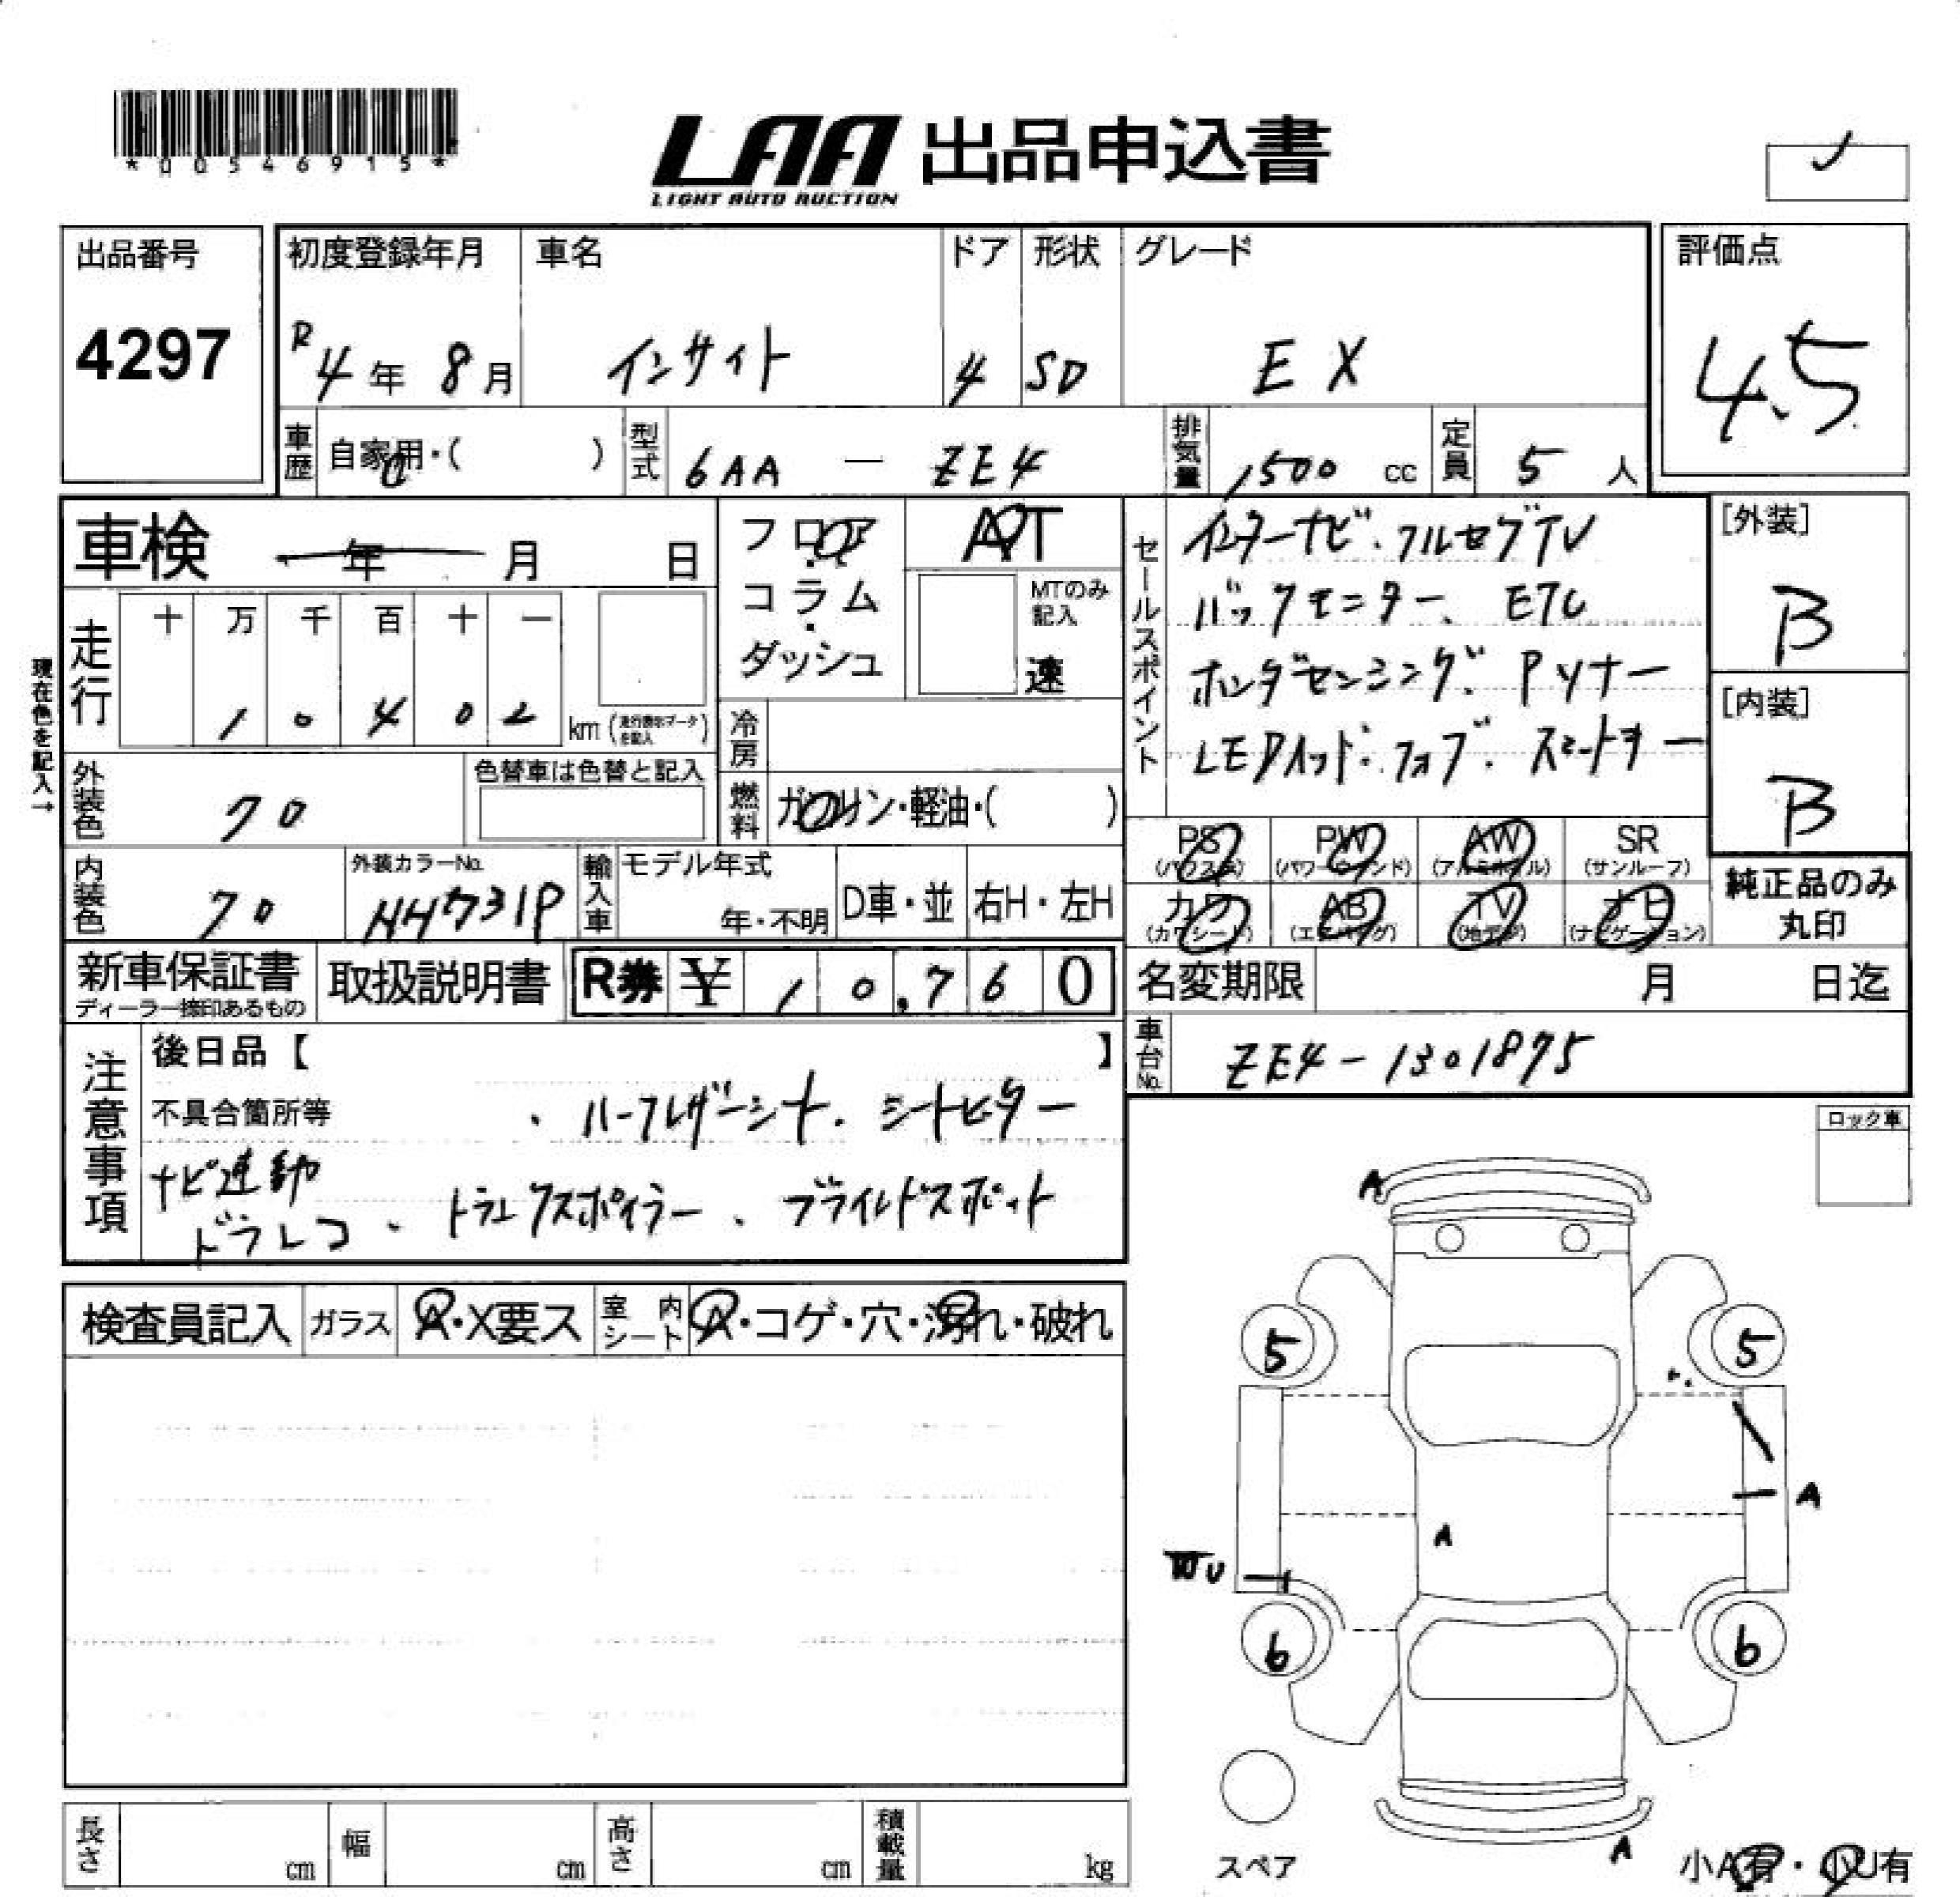 *00546915*
LAA 出品申込書
LIGHT AUTO AUCTION
出品番号
4297
初度登録年月
R4年 8月
車名
インサイト
ドア
4
形状
SD
グレード
EX
評価点
4.5
車歴 自家用・( )
型式 6AA — ZE4
排気量 1500 cc
定員 5 人
車検 年 月 日
フロア・コラム・ダッシュ
AT
MTのみ記入
速
セールスポイント
インターナビ・フルセグTV
バックモニター、ETC
ホンダセンシング、Pソナー
LEDヘッド・フォグ・スマートキー
[外装]
B
[内装]
B
現在色を記入→
走行
十 万 千 百 十 一
1 0 4 0 2 km (走行表示データを記入)
冷房
燃料 ガソリン・軽油・( )
外装色 70
色替車は色替と記入
内装色 70
外装カラーNo.
NH731P
輸入車
モデル年式
年・不明
D車・並
右H・左H
PS (パワステ)
PW (パワーウィンド)
AW (アルミホイル)
SR (サンルーフ)
カワ (カワシート)
AB (エアバッグ)
TV (地デジ)
ナビ (ナビゲーション)
純正品のみ丸印
新車保証書
ディーラー捺印あるもの
取扱説明書
R券 ¥ 10,760
名変期限 月 日迄
車台No. ZE4-1301875
注意事項
後日品【 】
不具合箇所等 ・ハーフレザーシート、シートヒーター
ナビ連動
ドラレコ、トランクスポイラー、ブラインドスポット
ロック車
検査員記入
ガラス A・X要ス
室内シート A・コゲ・穴・汚れ・破れ
A
5
5
A
A
U
6
6
A
スペア
小A有・小U有
長さ cm
幅 cm
高さ cm
積載量 kg